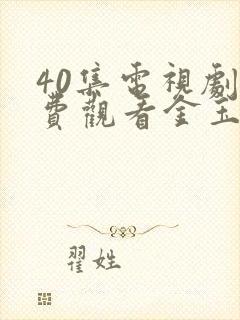 40集電視劇
費觀看金玉
翟姓